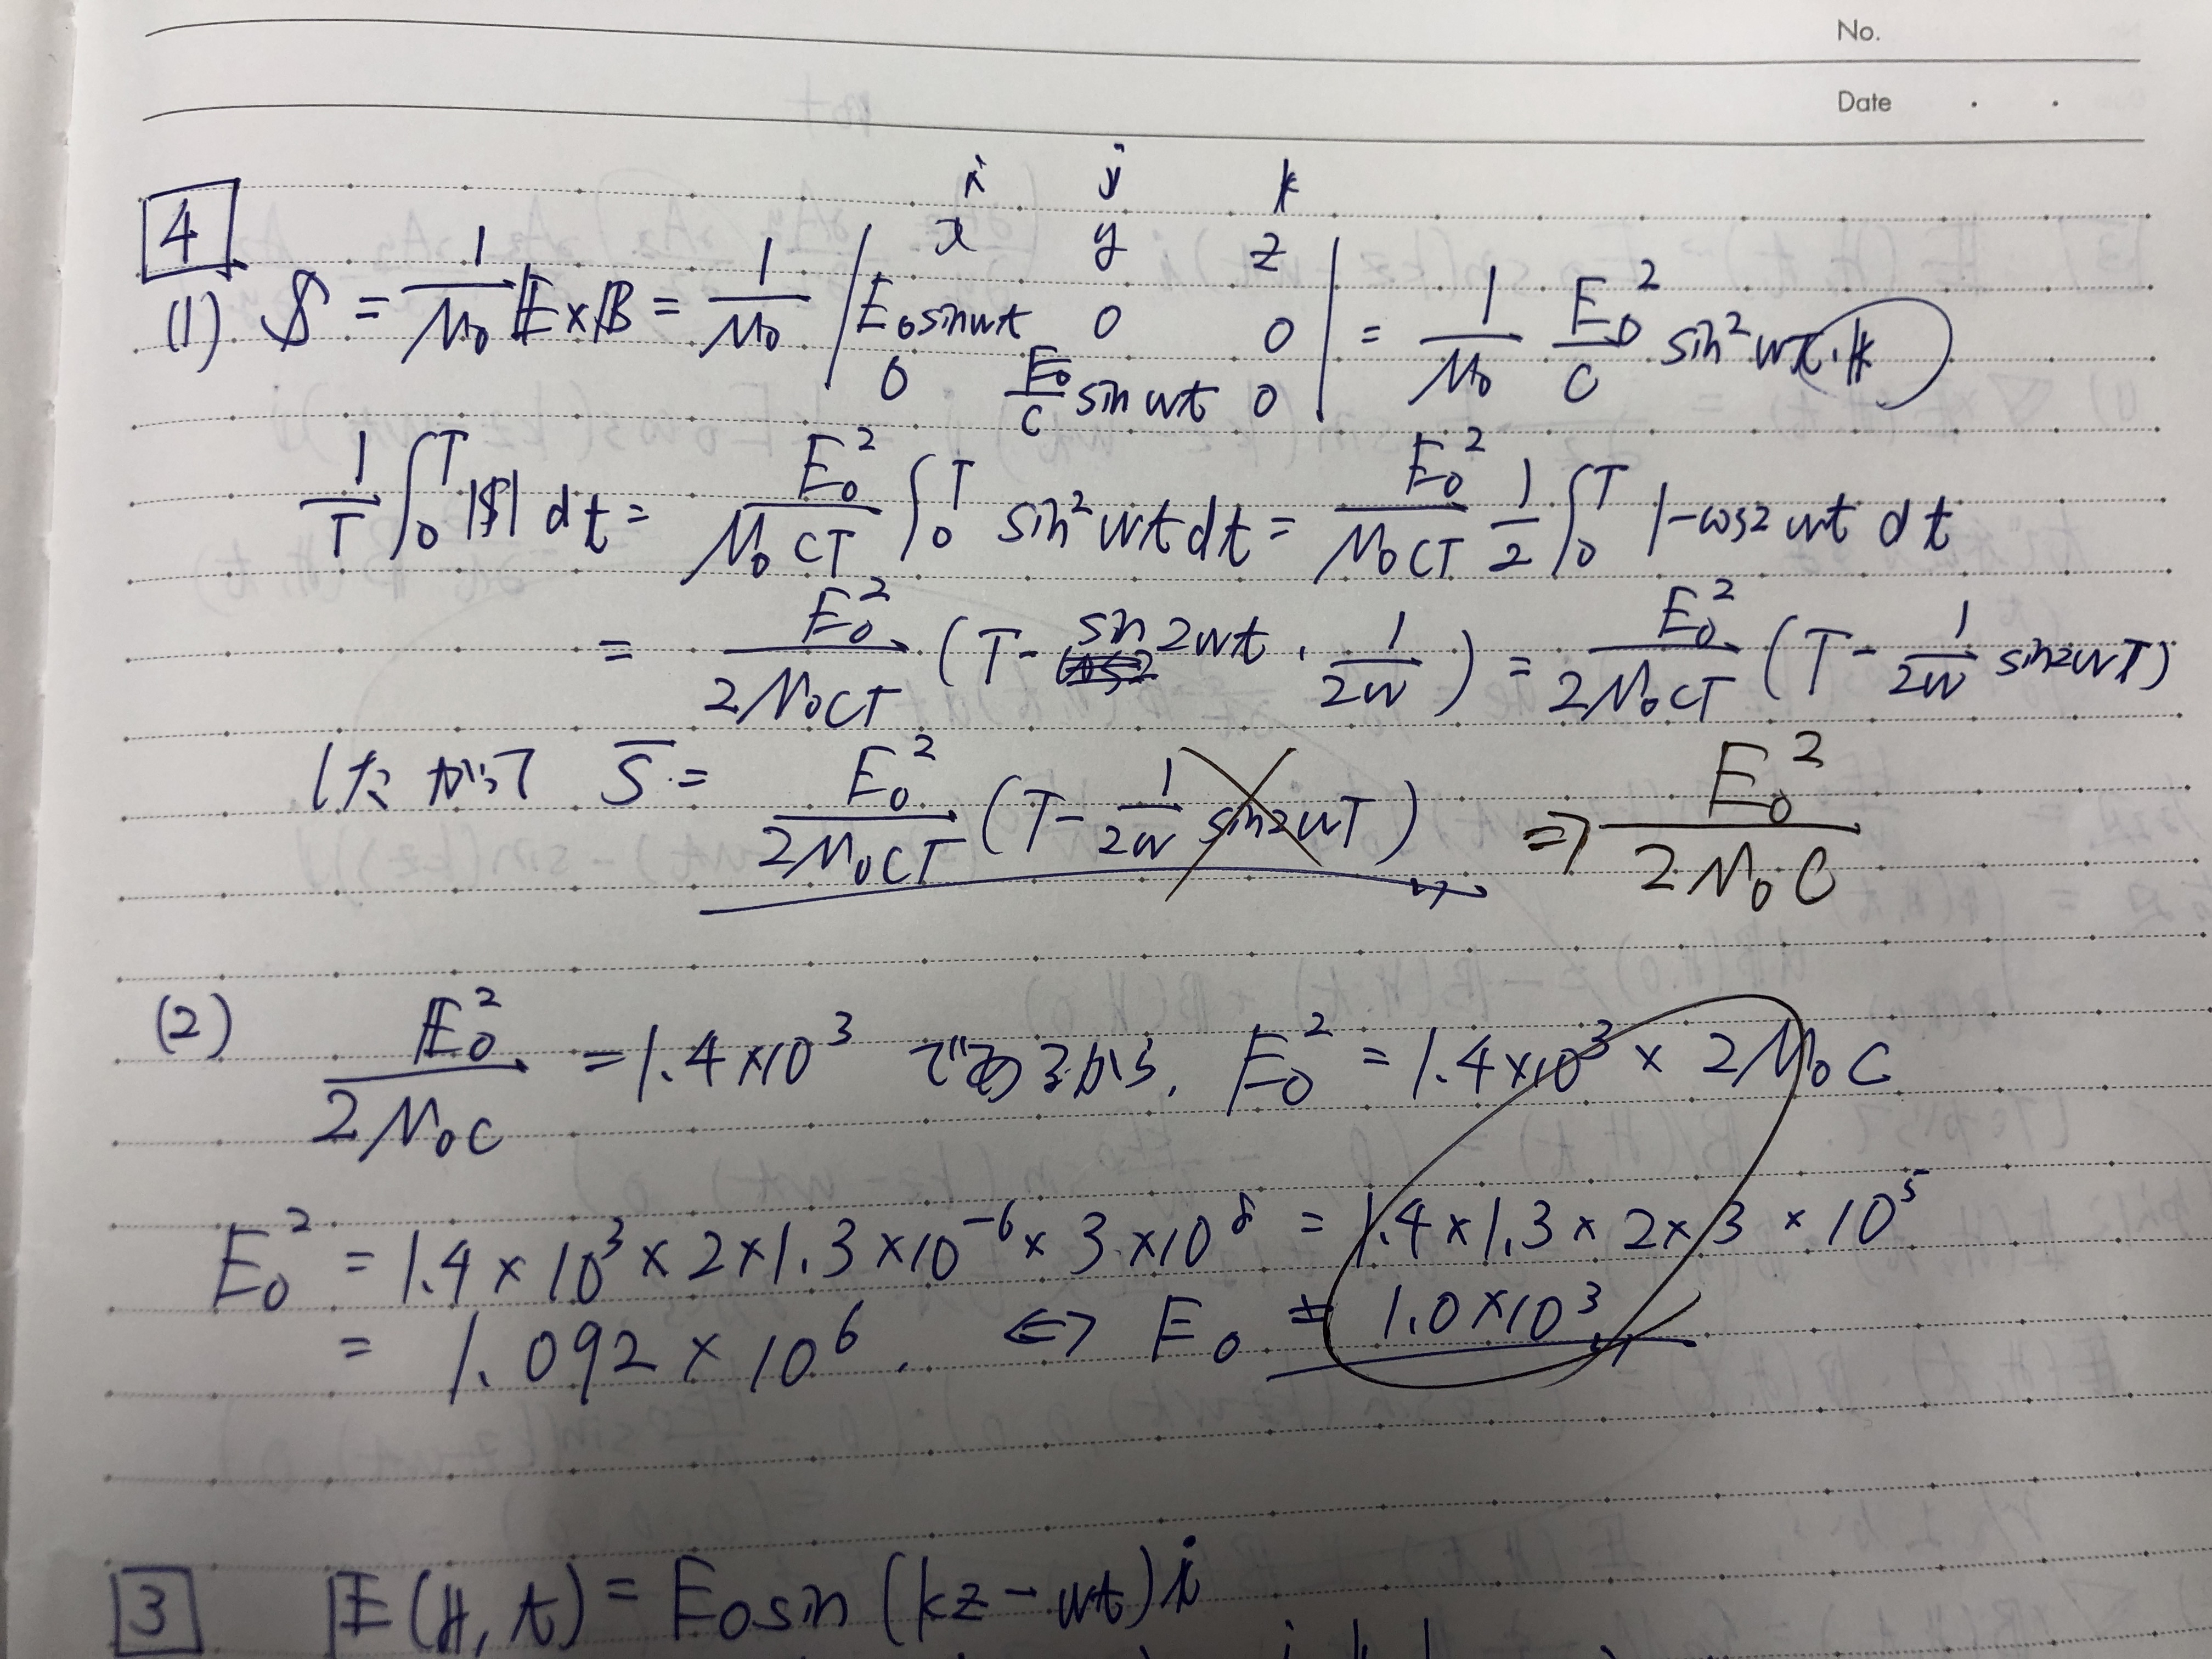 No.
Date
i j k
x y z
4
(1) S = 1/μ₀ E×B = 1/μ₀ | E₀sinωt 0 0 / 0 E₀/c sinωt 0 | = 1/μ₀ E₀²/c sin²ωt・k
1/T ∫₀ᵀ |S| dt = E₀²/μ₀cT ∫₀ᵀ sin²ωt dt = E₀²/μ₀cT 1/2 ∫₀ᵀ 1-cos2ωt dt
= E₀²/2μ₀cT (T - sin2ωt・1/2ω) = E₀²/2μ₀cT (T - 1/2ω sin2ωT)
したがって S̄ = E₀²/2μ₀cT (T - 1/2ω sin2ωT) ⇒ E₀²/2μ₀C
(2) E₀²/2μ₀c = 1.4×10³ であるから, E₀² = 1.4×10³ × 2μ₀C
E₀² = 1.4×10³×2×1.3×10⁻⁶×3×10⁸ = 1.4×1.3×2×3×10⁵
= 1.092×10⁶. ⇔ E₀ = 1.0×10³
3 E(r,t) = E₀sin(kz-ωt)i